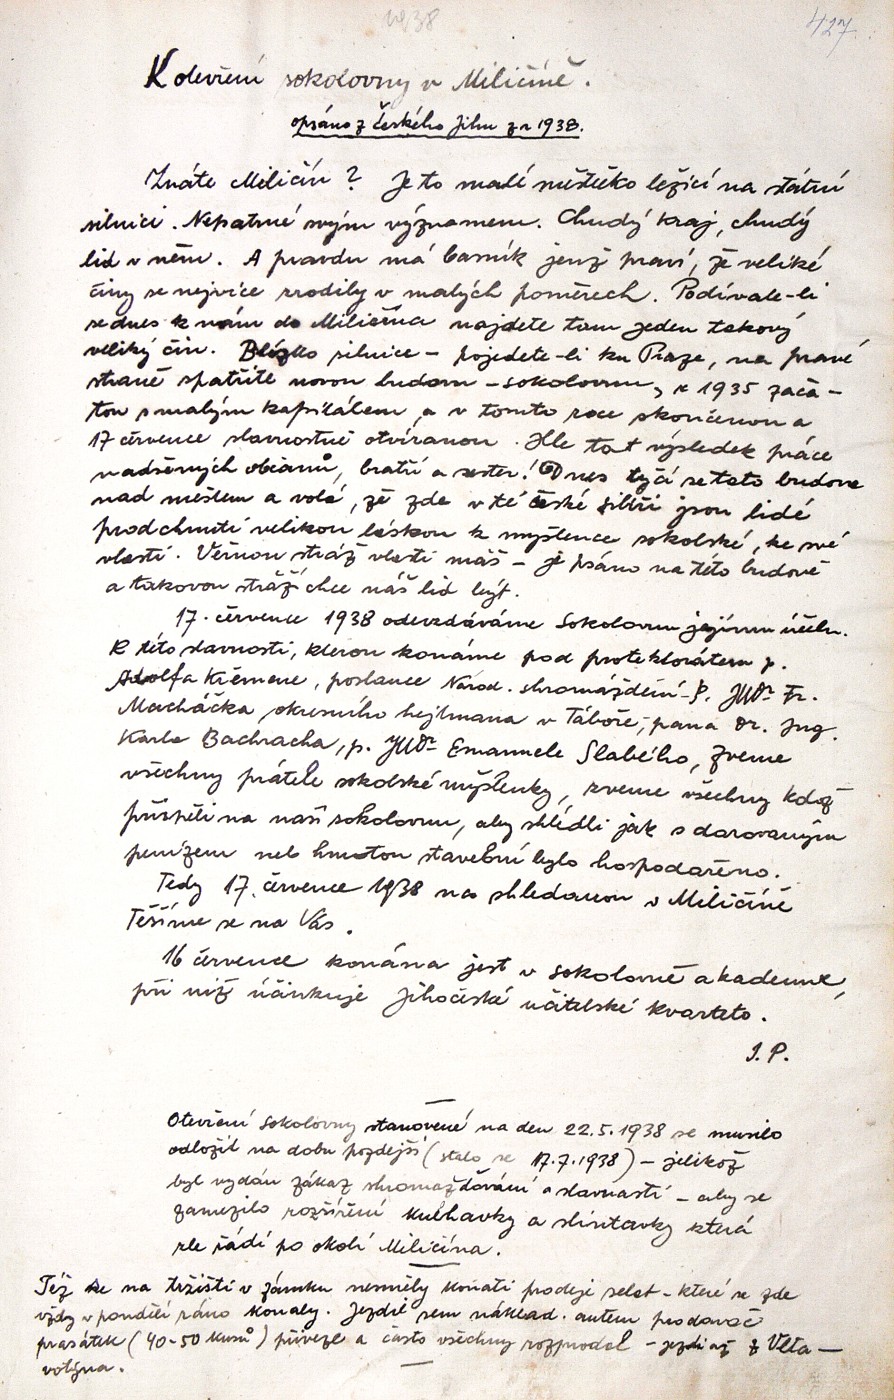 1938
427
K otevření sokolovny v Miličíně.
opsáno z Českého Jihu z r 1938.
Znáte Miličín? Je to malé městečko ležící na státní
silnici. Nepatrné svým významem. Chudý kraj, chudý
lid v něm. A pravdu má basník jenž praví, že veliké
činy se nejvíce zrodily v malých poměrech. Podíváte-li
se dnes k nám do Miličína najdete tam jeden takový
veliký čin. Blízko silnice – pojedete-li ku Praze, na pravé
straně spatříte novou budovu – sokolovnu, r 1935 zača-
tou s malým kapitálem, a v tomto roce skončenou a
17 července slavnostně otvíranou. Hle tot výsledek práce
nadšených občanů, bratří a sester! Dnes tyčí se tato budova
nad městem a volá, že zde v té české Sibiři jsou lidé
prodchnutí velikou láskou k myšlence sokolské, ke své
vlasti. Věrnou stráž vlasti máš – je psáno na této budově
a takovou stráží chce náš lid být.
17. července 1938 odevzdáváme Sokolovnu jejímu účelu.
K této slavnosti, kterou konáme pod protektorátem p.
Adolfa Křemene, poslance Národ. shromáždění – P. JUDr Fr.
Macháčka okresního hejtmana v Táboře, pana Dr. Ing.
Karla Bachracha, p. JUDr Emanuele Slabého, zveme
všechny přátele sokolské myšlenky, zveme všechny kdož
přispěli na naší sokolovnu, aby shlédli jak s darovaným
penízem neb hmotou stavební bylo hospodařeno.
Tedy 17. července 1938 na shledanou v Miličíně
Těšíme se na Vás.
16 července konána jest v sokolovně akademie,
při niž účinkuje Jihočeské učitelské kvarteto.
J. P.
Otevření Sokolovny stanovené na den 22.5.1938 se musilo
odložit na dobu pozdější (stalo se 17.7.1938) – jelikož
byl vydán zákaz shromažďování a slavností – aby se
zamezilo rozšíření kulhavky a slintavky která
zle řádí po okolí Miličína.
Též se na tržišti v zámku nesměly konati prodeje selat – které se zde
vždy v pondělí ráno konaly. Jezdil sem náklad. autem prodavač
prasátek (40–50 kusů) přiveze a často všechny rozprodal – jezdí až z Vlta–
votýna.